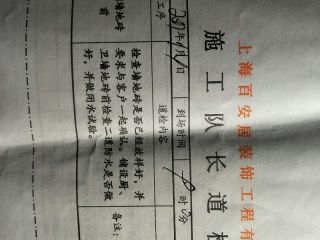 上海百安居装饰工程有
施工队长道检
工序
年9月10日
到场时间
时 分
道检内容
墙地砖
前
检查墙地砖是否已经放样好，并
要求与客户一起确认。铺设厨、
卫墙地砖前检查二道防水是否做
好，并做闭水试验。
备注：